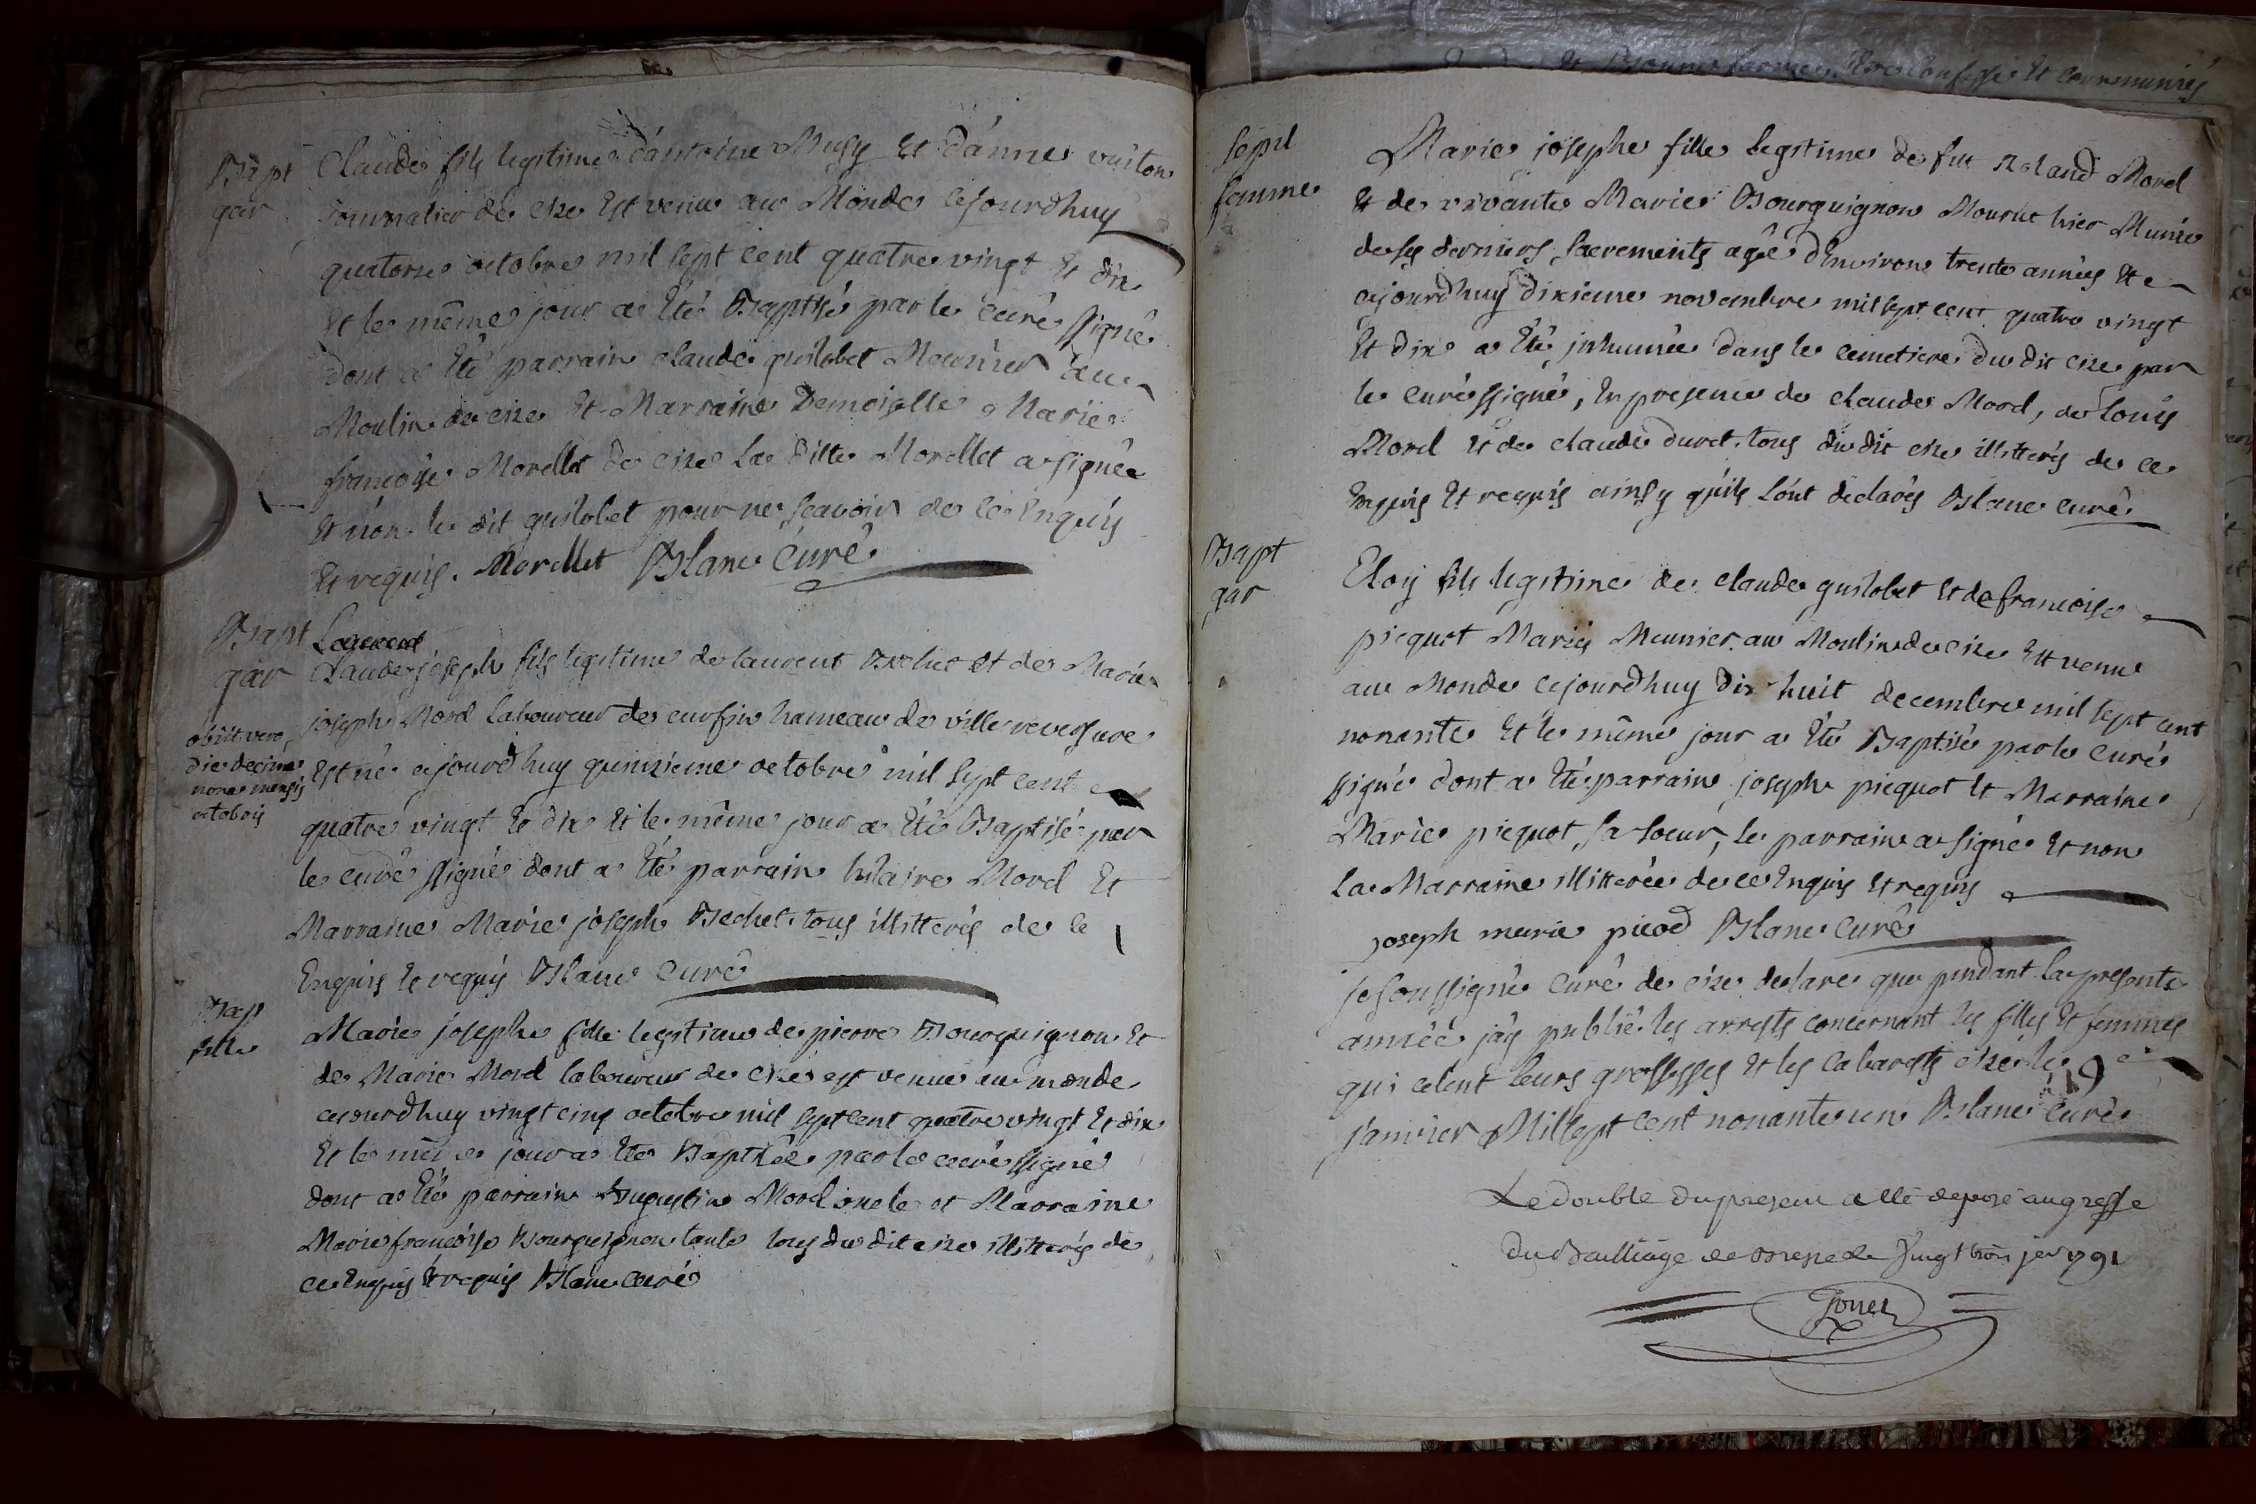 Bapt
gar
Claude fils legitime d'antoine Musy Et d'anne vuiton
journalier de cize Est venu au Monde cejourdhuy
quatorze octobre mil sept cent quatre vingt Et dix
Et le même jour a Eté Baptisé par le curé ssigné
dont a Eté parrain claude guilobet Meunier au
Moulin de cize Et Marraine Demoiselle Marie
francoise Morellet de cize La ditte Morellet a signée
Et non le dit guilobet pour ne scavoir de ce Enquis
Et requis. Morellet Blanc Curé
Bapt
gar
Laurent
Claude joseph fils legitime de laurent Bechet et de Marie
joseph Morel laboureur de curfin hameau de villereversure
obiit vero
die decima
nona mensis
octobris
Est né cejourdhuy quinzieme octobre mil sept cent
quatre vingt Et dix Et le même jour a Eté Baptisé par
le curé ssigné dont a Eté parrain hilaire Morel Et
Marraine Marie joseph Bechet tous illitterés de ce
Enquis Et requis Blanc Curé
Bap
fille
Marie josephe fille legitime de pierre Bourguignon Et
de Marie Morel laboureur de cize est venue au monde
cejourdhuy vingt cinq octobre mil sept cent quatre vingt Et dix
Et le même jour a Eté Baptisée par le curé ssigné
dont a Eté parrain Augustin Morel oncle et Marraine
Marie francoise Bourguignon tante tous du dit cize illitterés de
ce Enquis Et requis Blanc curé
Et confessé Et communiés
sepul
femme
Marie josephe fille legitime de feu Roland Morel
Et de vivante Marie Bourguignon Mourut hier Munie
de ses derniers sacrements agée d'Environ trente années Et
cejourdhuy dixieme novembre mil sept cent quatre vingt
Et dix a Eté inhumée dans le cemetiere du dit cize par
le curé ssigné, En presence de claude Morel, de louis
Morel Et de claude duret tous du dit cize illitterés de ce
Enquis Et requis ainsy quils l'ont declarés Blanc curé
Bapt
gar
Eloy fils legitime de claude guilobet Et de francoise
picquet Mariés Meunier au Moulin de cize Est venu
au Monde cejourdhuy dix huit decembre mil sept cent
nonante Et le même jour a Eté Baptisé par le curé
ssigné dont a Eté parrain joseph picquet Et Marraine
Marie picquet sa soeur, le parrain a signé Et non
La Marraine illitterée de ce Enquis Et requis
joseph marie picod Blanc Curé
je soussigné Curé de cize declare que pendant la presente
année j'ay publié les arrests concernant les filles Et femmes
qui celent leurs grossesses Et les cabarets cize le 9e
janvier Mil sept cent nonante un Blanc curé
Le double du present a été deposé au greffe
du Bailliage de Bresse le vingt trois jer 791